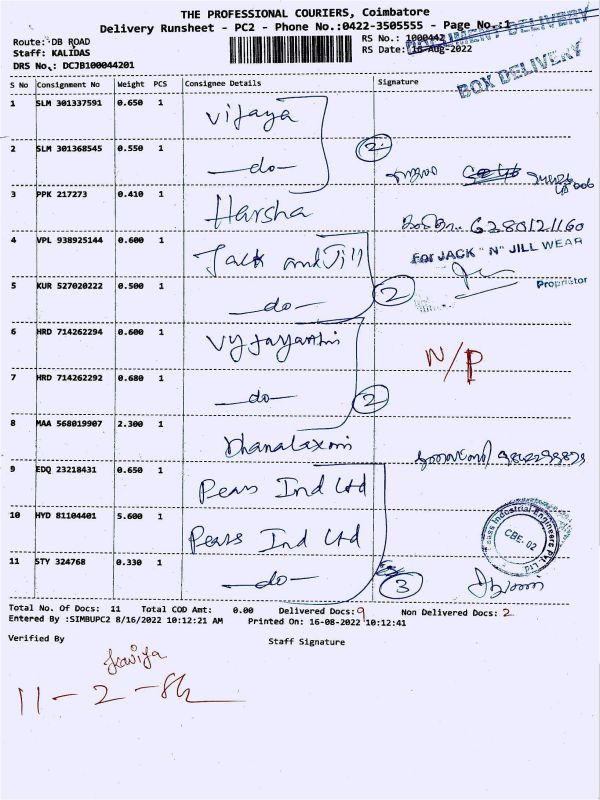 THE PROFESSIONAL COURIERS, Coimbatore
Delivery Runsheet - PC2 - Phone No.:0422-3505555 - Page No.:1
Route: DB ROAD
Staff: KALIDAS
DRS No.: DCJB100044201
RS No.: 1000442
RS Date: 16-Aug-2022
DOCUMENT DELIVERY
BOX DELIVERY
S No Consignment No Weight PCS Consignee Details Signature
1 SLM 301337591 0.650 1 Vijaya
2 SLM 301368545 0.550 1 —do— 2
3 PPK 217273 0.410 1 Harsha 6280121160
4 VPL 938925144 0.600 1 Jack and Jill
For JACK "N" JILL WEAR
Proprietor
5 KUR 527020222 0.500 1 —do— 2
6 HRD 714262294 0.600 1 Vyjayanthi N/P
7 HRD 714262292 0.680 1 —do— 2
8 MAA 568019907 2.300 1 Dhanalaxmi
9 EDQ 23218431 0.650 1 Pears Ind Ltd
10 HYD 81104401 5.600 1 Pears Ind Ltd
Industrial Engineers Pvt. Ltd
CBE-02
11 STY 324768 0.330 1 —do— 3
Total No. Of Docs: 11 Total COD Amt: 0.00 Delivered Docs: 9 Non Delivered Docs: 2
Entered By :SIMBUPC2 8/16/2022 10:12:21 AM Printed On: 16-08-2022 10:12:41
Verified By Staff Signature
Kaviya
11 - 2 -